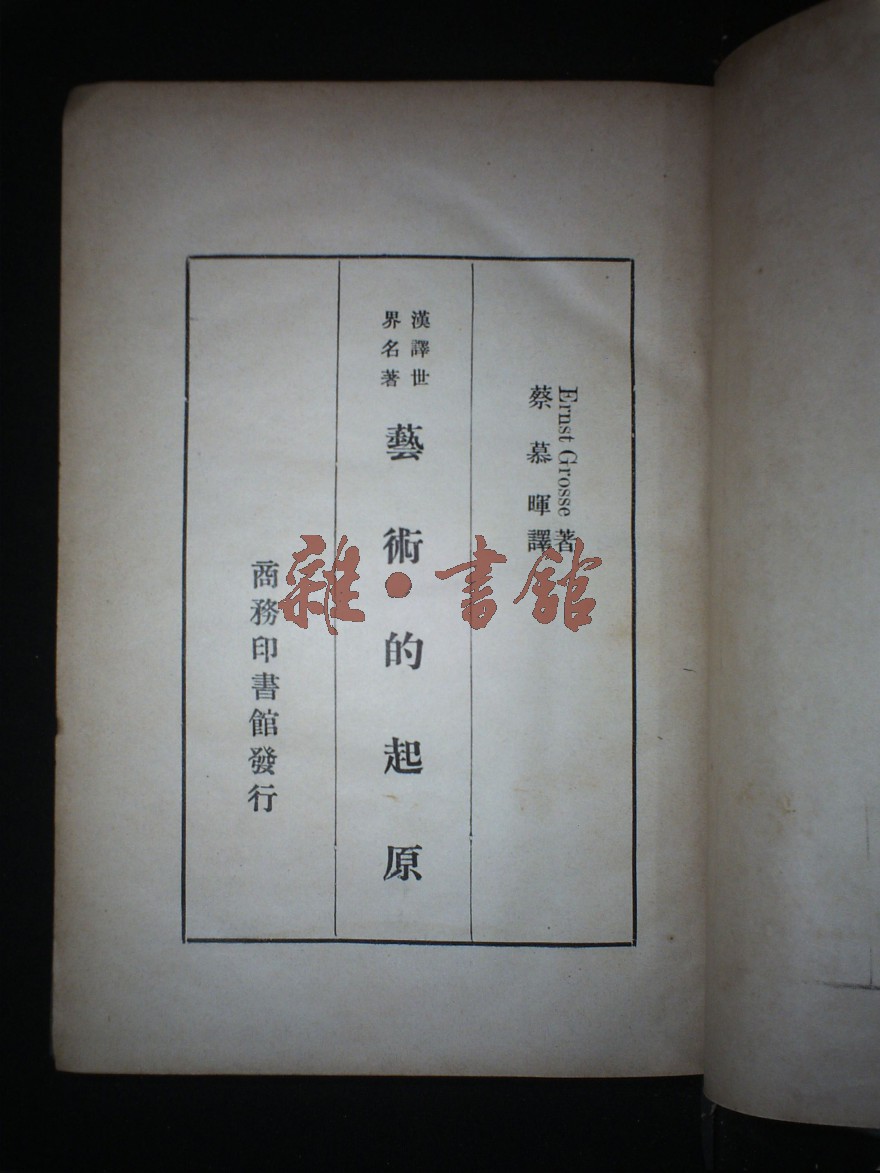 Ernst Grosse 著
蔡慕暉譯
漢譯世
界名著
藝術的起原
商務印書館發行
雜·書館